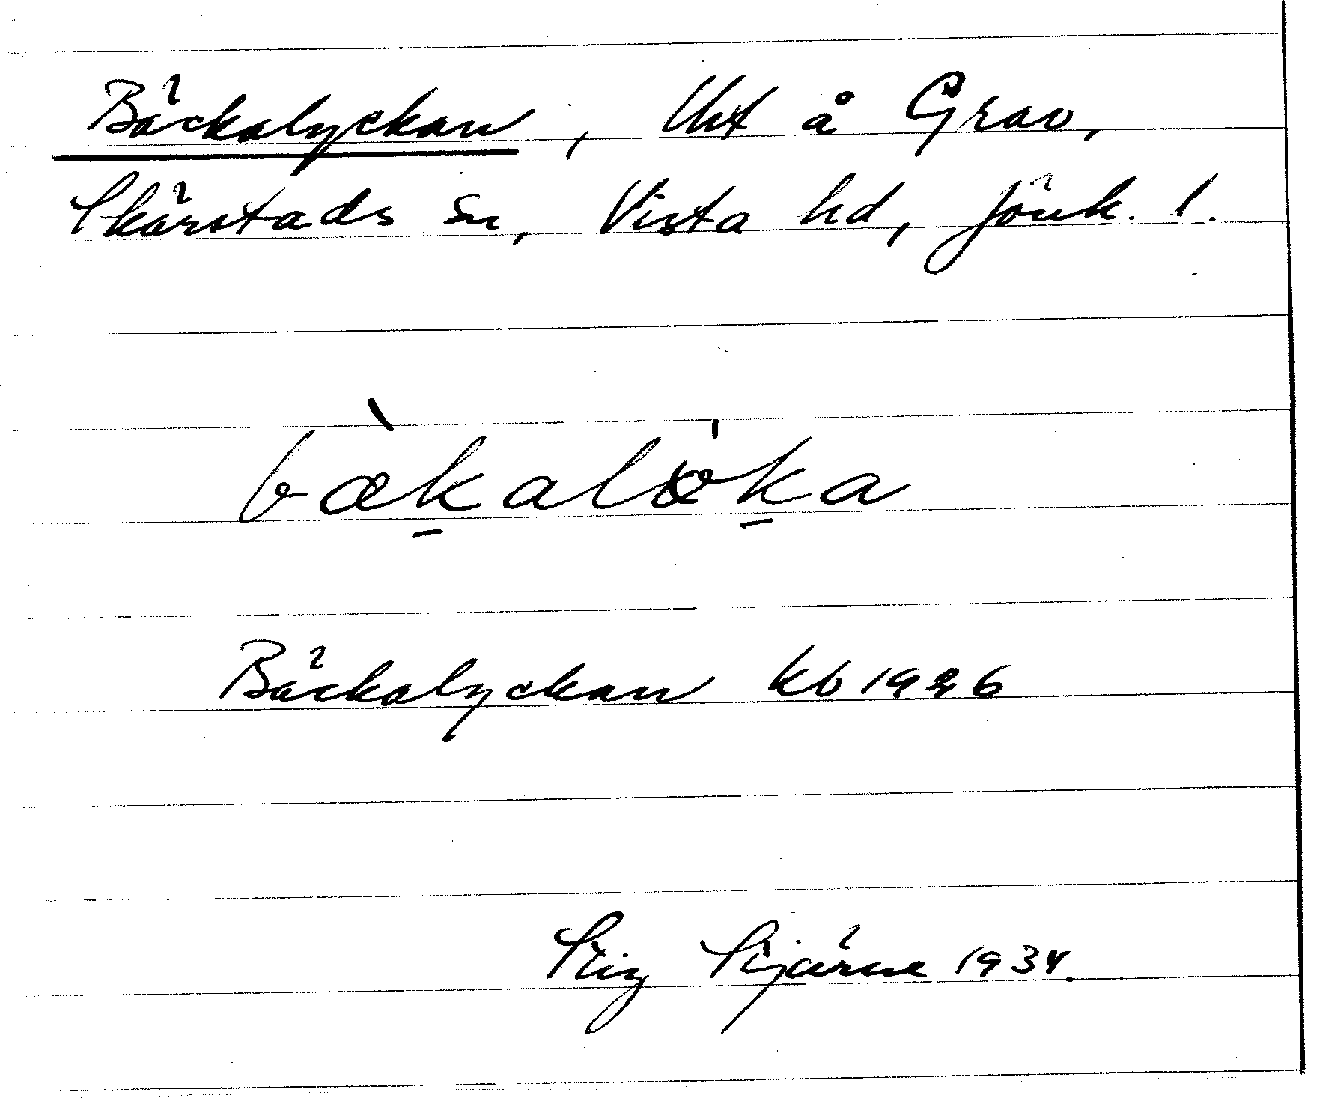 Bäckalyckan, Uht å Grav,
Skärstads sn, Vista hd, Jönk. l.
bæ̀k̠alö̍k̠a
Bäckalyckan kb 1926
Stig Stjärne 1934.